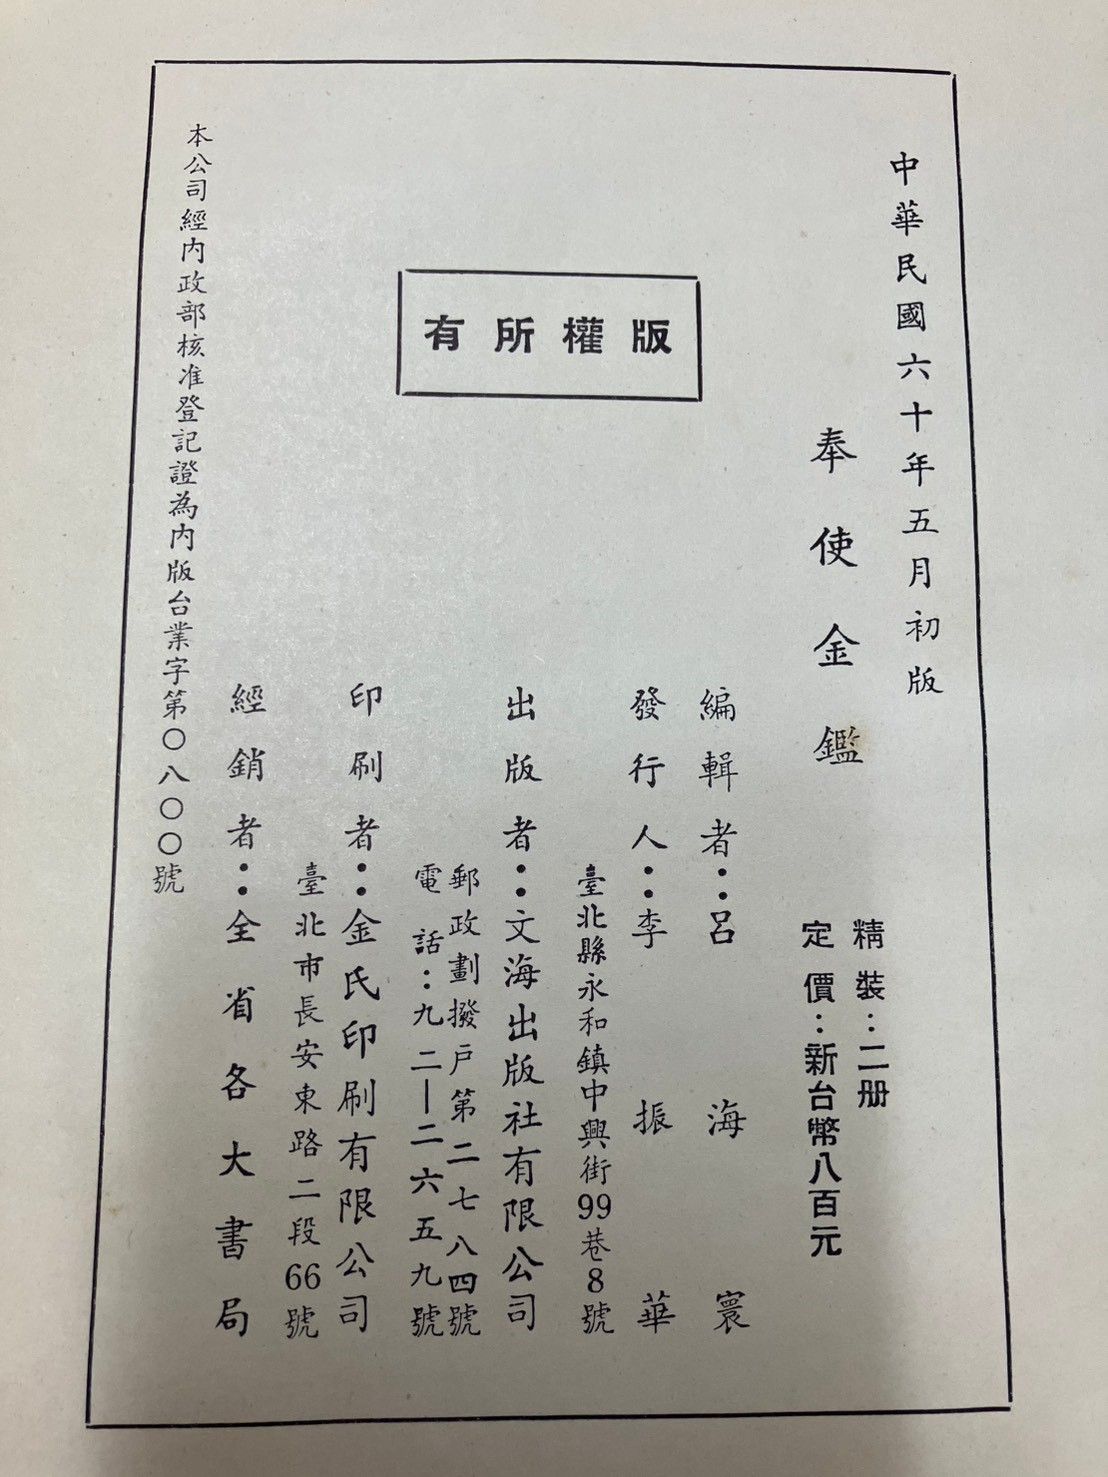 中華民國六十年五月初版
奉使金鑑
精裝：二册
定價：新台幣八百元
版權所有
編輯者：呂海寰
發行人：李振華
臺北縣永和鎮中興街99巷8號
出版者：文海出版社有限公司
郵政劃撥戶第二七八四號
電話：九二—二六五九號
印刷者：金氏印刷有限公司
臺北市長安東路二段66號
經銷者：全省各大書局
本公司經內政部核准登記證為內版台業字第〇八〇〇號